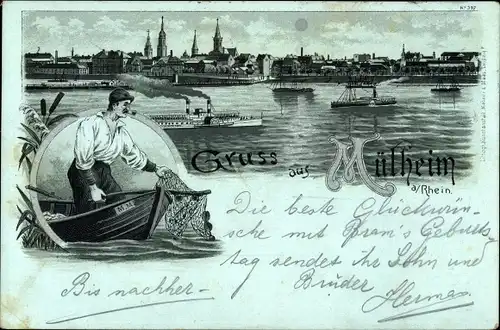 No 382
Gruss aus Mülheim
a/Rhein.
Die beste Glückwün-
sche mit Bram's Geburts
tag sendet ihr Sohn und
Bruder
Herman
Bis nachher-